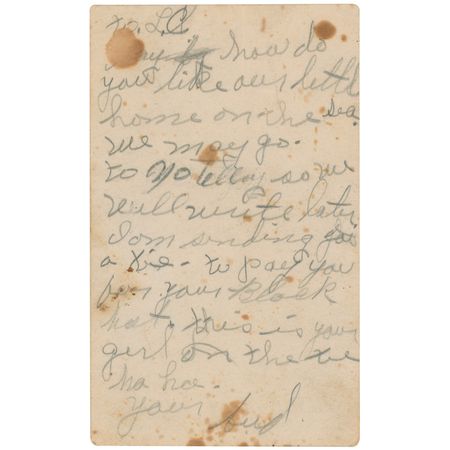 to L.C
how do
you like our little
home on the sea
we may go.
to so we
will write later
I am sending you
a tie - to pay you
for your Black
hat. this is your
girl on the tie
ha ha.
your bud